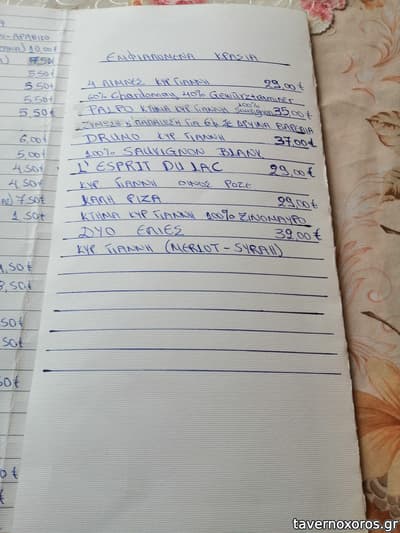 ΕΜΦΙΑΛΩΜΕΝΑ ΚΡΑΣΙΑ
4 ΛΙΜΝΕΣ ΚΥΡ ΓΙΑΝΝΗ 29,00€
60% Chardonnay 40% Gewürztraminer
ΚΤΗΜΑ ΚΥΡ ΓΙΑΝΝΗ 100% Sauvignon 35,00€
ΖΥΜΩΣΗ & ΠΑΛΑΙΩΣΗ ΓΙΑ 6 ΣΕ ΔΡΥΙΝΑ ΒΑΡΕΛΙΑ
DRUMO ΚΥΡ ΓΙΑΝΝΗ 37,00€
100% SAUVIGNON BLANC
L'ESPRIT DU LAC 29,00€
ΚΥΡ ΓΙΑΝΝΗ ΟΙΝΟΣ ΡΟΖΕ
ΚΑΛΗ ΡΙΖΑ 29,00€
ΚΤΗΜΑ ΚΥΡ ΓΙΑΝΝΗ 100% ΞΙΝΟΜΑΥΡΟ
ΔΥΟ ΕΛΙΕΣ 39,00€
ΚΥΡ ΓΙΑΝΝΗ (MERLOT - SYRAH)
5,50€
5,50€
5,50€
6,00€
5,00€
4,50€
4,50€
7,50€
1,50€
tavernoxoros.gr